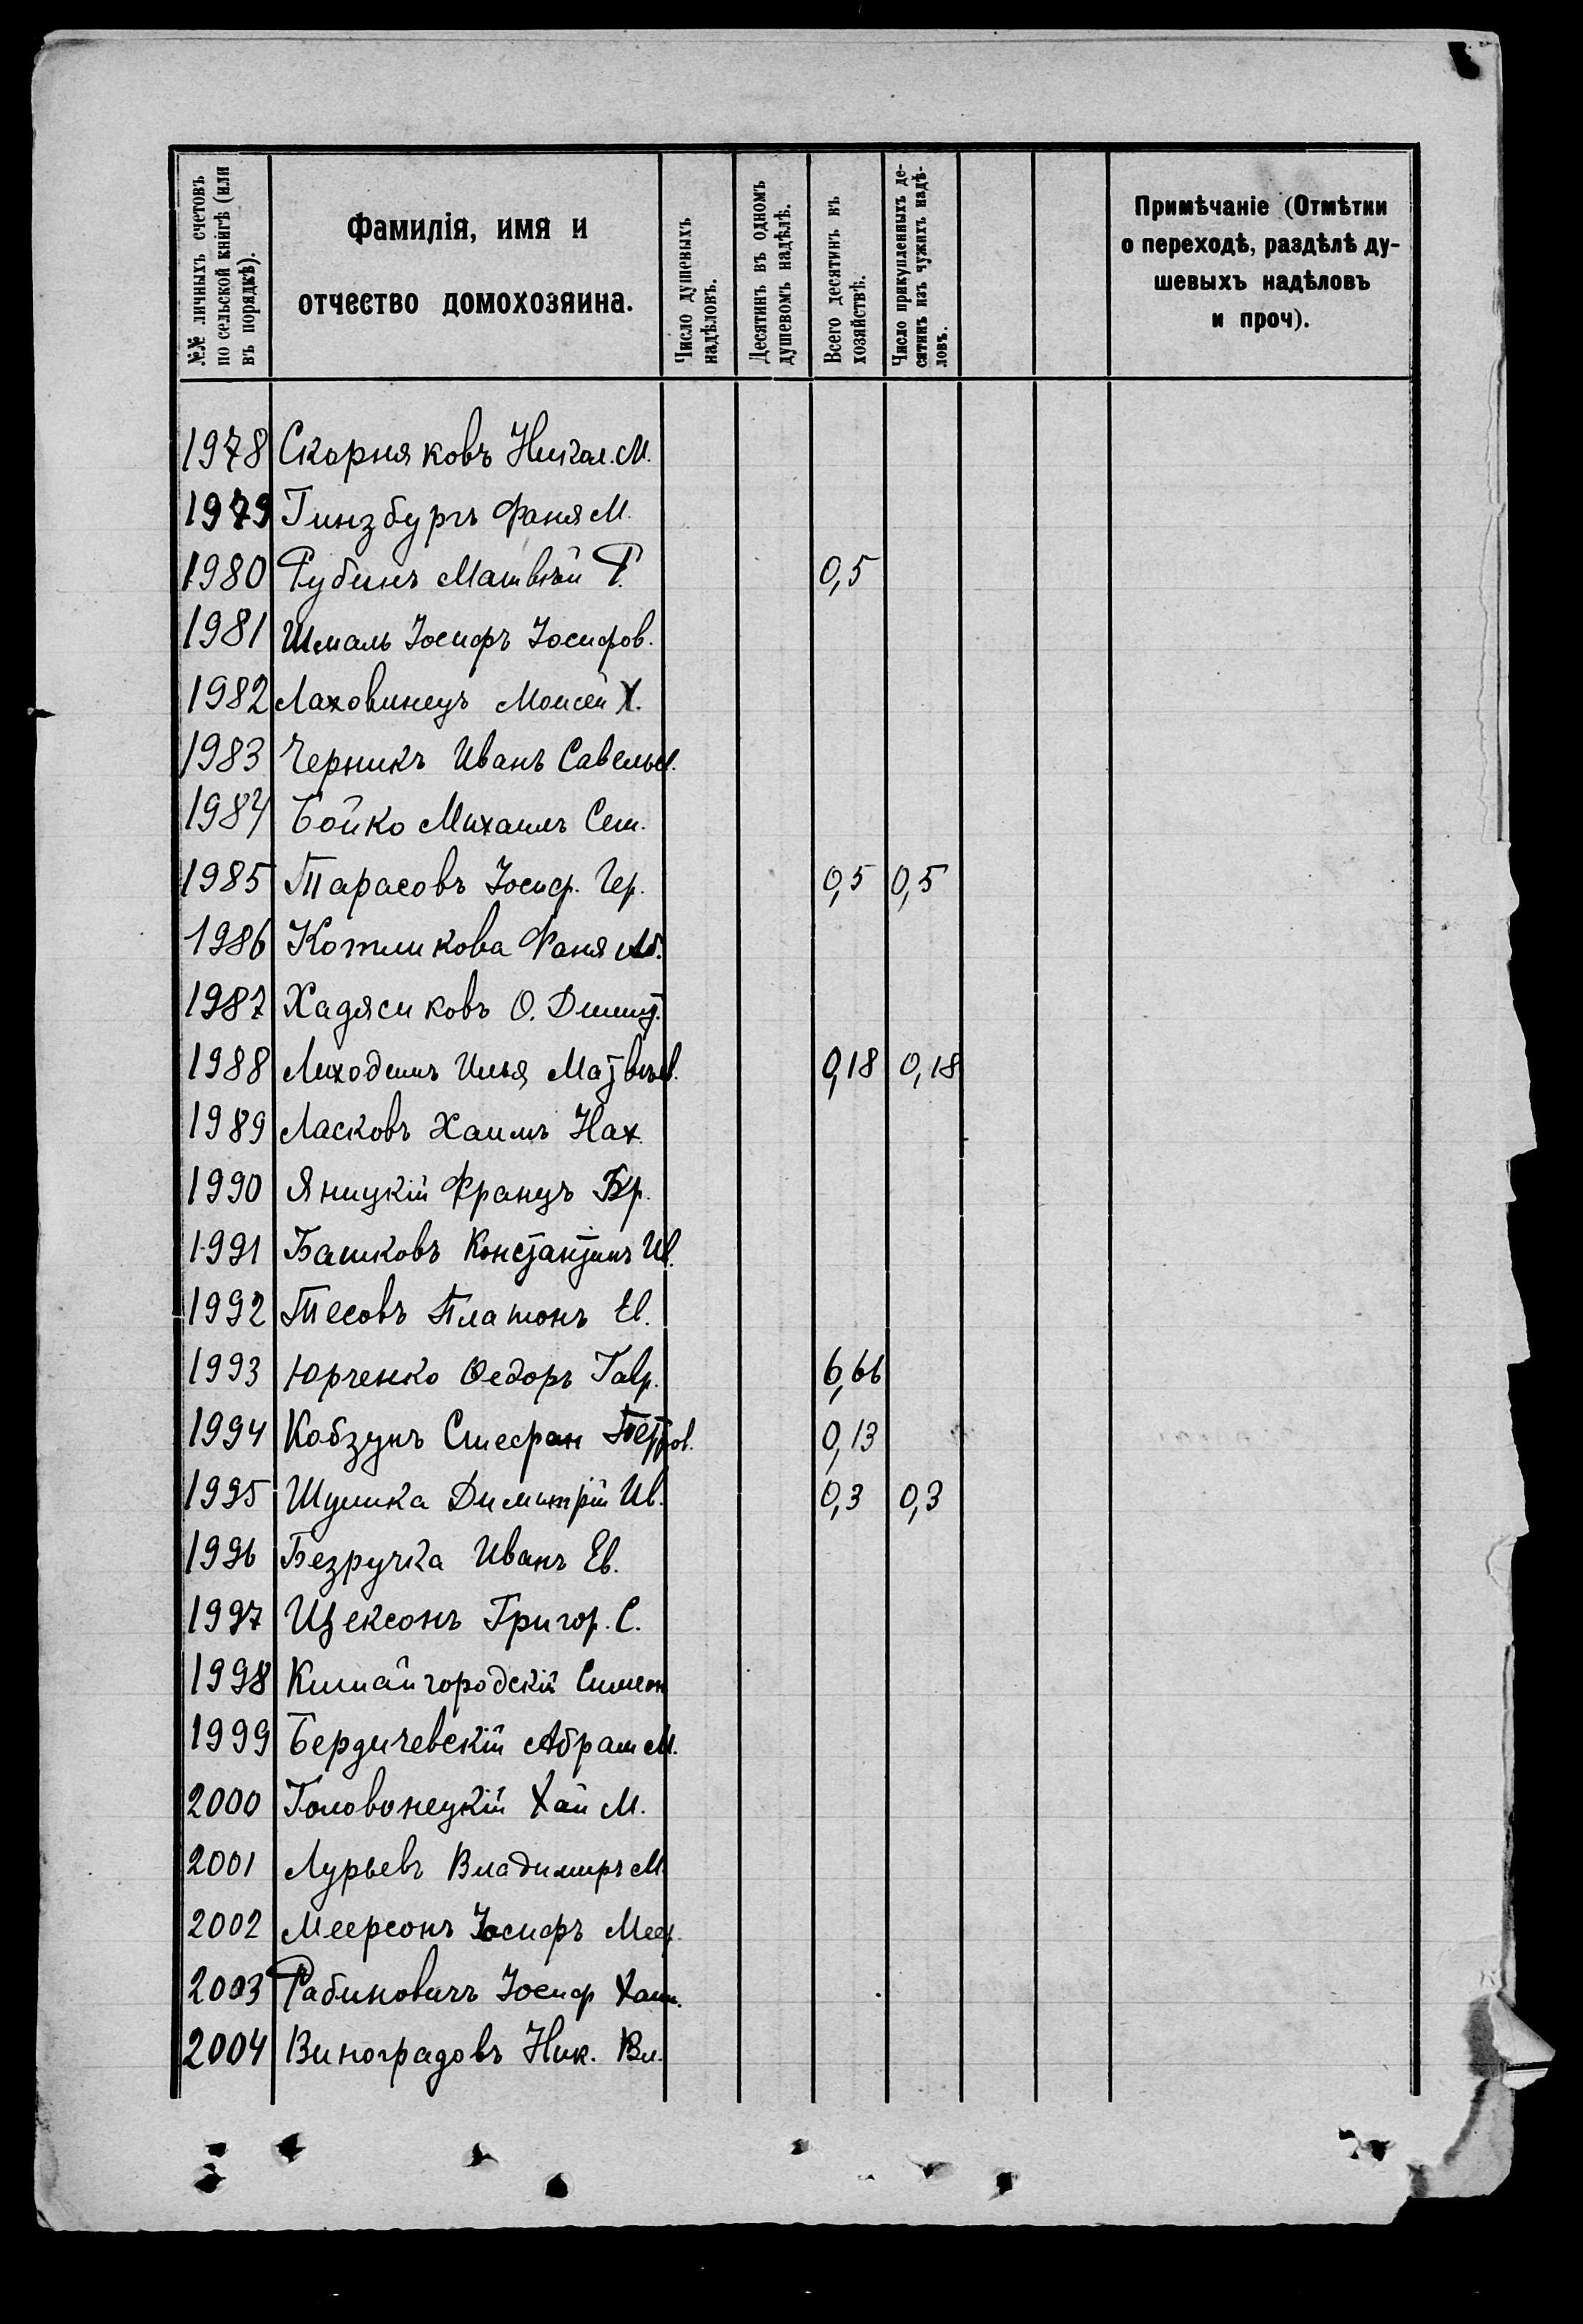 №№ личныхъ счетовъ
по сельской книгѣ (или
въ порядкѣ).
Фамилія, имя и
отчество домохозяина.
Число душевыхъ
надѣловъ.
Десятинъ въ одномъ
душевомъ надѣлѣ.
Всего десятинъ въ
хозяйствѣ.
Число прикупленныхъ де-
сятинъ изъ чужихъ надѣ-
ловъ.
Примѣчаніе (Отмѣтки
о переходѣ, раздѣлѣ ду-
шевыхъ надѣловъ
и проч).
1978 Скорняковъ Никол. М.
1979 Гинзбургъ Фаня М.
1980 Рубинъ Матвѣй Р. 0,5
1981 Шмаль Іосифъ Іосифов.
1982 Лаховинецъ Моисей Х.
1983 Черникъ Иванъ Савельев.
1984 Бойко Михаилъ Сем.
1985 Тарасовъ Іосиф. Гер. 0,5 0,5
1986 Котликова Фаня Аб.
1987 Хадясиковъ О. Дмит.
1988 Лиходѣтъ Илья Матвѣев. 0,18 0,18
1989 Ласковъ Хаимъ Нах.
1990 Яницкій Францъ Бр.
1991 Башковъ Константинъ Ив.
1992 Тесовъ Платонъ Ев.
1993 Юрченко Ѳедоръ Гавр. 6,66
1994 Кобзунъ Стефан Петров. 0,13
1995 Шулика Димитрій Ив. 0,3 0,3
1996 Безручка Иванъ Ев.
1997 Щексонъ Григор. С.
1998 Китайгородскій Симеон
1999 Бердичевскій Абрам М.
2000 Головонецкій Хай М.
2001 Лурьевъ Владимиръ М.
2002 Меерсонъ Іосифъ Меер.
2003 Рабиновичъ Іосиф Хаим.
2004 Виноградовъ Ник. Вл.